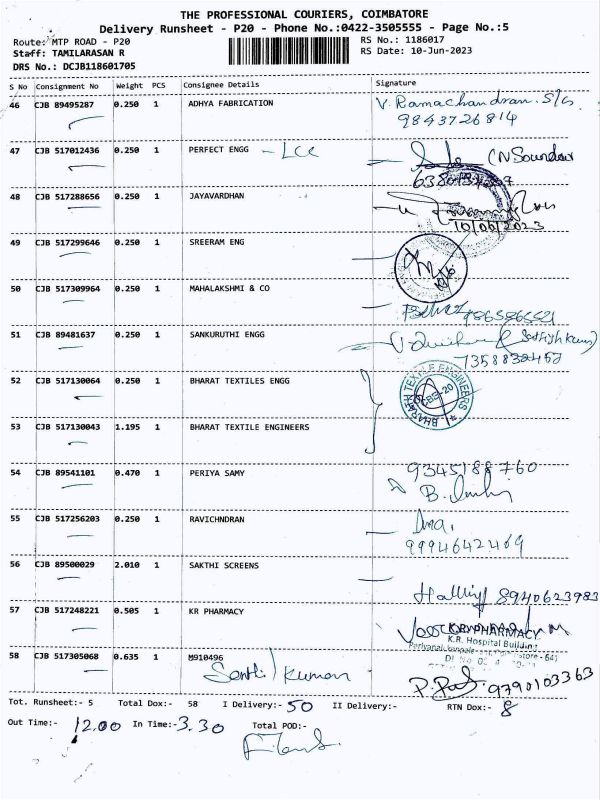 THE PROFESSIONAL COURIERS, COIMBATORE
Delivery Runsheet - P20 - Phone No.:0422-3505555 - Page No.:5
Route: MTP ROAD - P20
RS No.: 1186017
Staff: TAMILARASAN R
RS Date: 10-Jun-2023
DRS No.: DCJB118601705
S No Consignment No Weight PCS Consignee Details Signature
46 CJB 89495287 0.250 1 ADHYA FABRICATION V. Ramachandran. S/G
9843726814
47 CJB 517012436 0.250 1 PERFECT ENGG - LCC
48 CJB 517288656 0.250 1 JAYAVARDHAN
10/06/2023
49 CJB 517299646 0.250 1 SREERAM ENG
50 CJB 517309964 0.250 1 MAHALAKSHMI & CO
51 CJB 89481637 0.250 1 SANKURUTHI ENGG
7358838452
52 CJB 517130064 0.250 1 BHARAT TEXTILES ENGG
BHARATH TEXTILE ENGINEERS
CBE-20
53 CJB 517130043 1.195 1 BHARAT TEXTILE ENGINEERS
54 CJB 89541101 0.470 1 PERIYA SAMY 9345188760
55 CJB 517256203 0.250 1 RAVICHNDRAN
9994642469
56 CJB 89500029 2.010 1 SAKTHI SCREENS
8940623983
57 CJB 517248221 0.505 1 KR PHARMACY
K.R. PHARMACY
K.R. Hospital Building
58 CJB 517305068 0.635 1 M910496
Senthil Kumar
9790103363
Tot. Runsheet:- 5 Total Dox:- 58 I Delivery:- 50 II Delivery:- RTN Dox:- 8
Out Time:- 12.00 In Time:- 3.30 Total POD:-